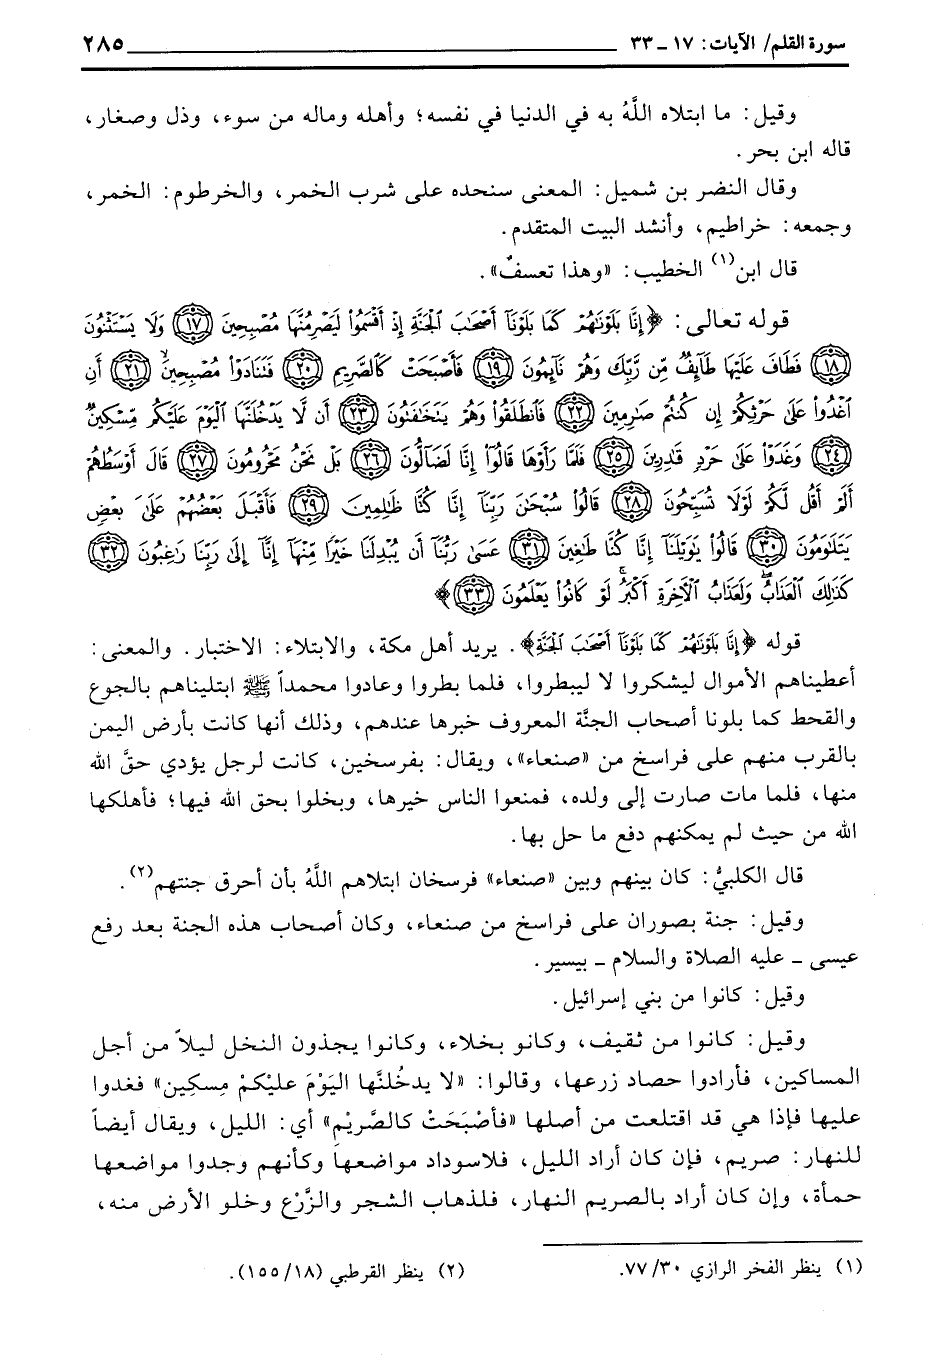 سورة القلم/ الآيات: ١٧ ـ ٣٣ ٢٨٥
وقيل: ما ابتلاه اللَّهُ به في الدنيا في نفسه؛ وأهله وماله من سوء، وذل وصغار،
قاله ابن بحر.
وقال النضر بن شميل: المعنى سنحده على شرب الخمر، والخرطوم: الخمر،
وجمعه: خراطيم، وأنشد البيت المتقدم.
قال ابن(١) الخطيب: «وهذا تعسفٌ».
قوله تعالى: ﴿إِنَّا بَلَوْنَٰهُمْ كَمَا بَلَوْنَآ أَصْحَٰبَ ٱلْجَنَّةِ إِذْ أَقْسَمُوا۟ لَيَصْرِمُنَّهَا مُصْبِحِينَ ﴿١٧﴾ وَلَا يَسْتَثْنُونَ
﴿١٨﴾ فَطَافَ عَلَيْهَا طَآئِفٌ مِّن رَّبِّكَ وَهُمْ نَآئِمُونَ ﴿١٩﴾ فَأَصْبَحَتْ كَٱلصَّرِيمِ ﴿٢٠﴾ فَتَنَادَوْا۟ مُصْبِحِينَ ﴿٢١﴾ أَنِ
ٱغْدُوا۟ عَلَىٰ حَرْثِكُمْ إِن كُنتُمْ صَٰرِمِينَ ﴿٢٢﴾ فَٱنطَلَقُوا۟ وَهُمْ يَتَخَٰفَتُونَ ﴿٢٣﴾ أَن لَّا يَدْخُلَنَّهَا ٱلْيَوْمَ عَلَيْكُم مِّسْكِينٌ
﴿٢٤﴾ وَغَدَوْا۟ عَلَىٰ حَرْدٍ قَٰدِرِينَ ﴿٢٥﴾ فَلَمَّا رَأَوْهَا قَالُوٓا۟ إِنَّا لَضَآلُّونَ ﴿٢٦﴾ بَلْ نَحْنُ مَحْرُومُونَ ﴿٢٧﴾ قَالَ أَوْسَطُهُمْ
أَلَمْ أَقُل لَّكُمْ لَوْلَا تُسَبِّحُونَ ﴿٢٨﴾ قَالُوا۟ سُبْحَٰنَ رَبِّنَآ إِنَّا كُنَّا ظَٰلِمِينَ ﴿٢٩﴾ فَأَقْبَلَ بَعْضُهُمْ عَلَىٰ بَعْضٍ
يَتَلَٰوَمُونَ ﴿٣٠﴾ قَالُوا۟ يَٰوَيْلَنَآ إِنَّا كُنَّا طَٰغِينَ ﴿٣١﴾ عَسَىٰ رَبُّنَآ أَن يُبْدِلَنَا خَيْرًا مِّنْهَآ إِنَّآ إِلَىٰ رَبِّنَا رَٰغِبُونَ ﴿٣٢﴾
كَذَٰلِكَ ٱلْعَذَابُ وَلَعَذَابُ ٱلْءَاخِرَةِ أَكْبَرُ لَوْ كَانُوا۟ يَعْلَمُونَ ﴿٣٣﴾﴾
قوله ﴿إِنَّا بَلَوْنَٰهُمْ كَمَا بَلَوْنَآ أَصْحَٰبَ ٱلْجَنَّةِ﴾. يريد أهل مكة، والابتلاء: الاختبار. والمعنى:
أعطيناهم الأموال ليشكروا لا ليبطروا، فلما بطروا وعادوا محمداً ﷺ ابتليناهم بالجوع
والقحط كما بلونا أصحاب الجنَّة المعروف خبرها عندهم، وذلك أنها كانت بأرض اليمن
بالقرب منهم على فراسخ من «صنعاء»، ويقال: بفرسخين، كانت لرجل يؤدي حقَّ الله
منها، فلما مات صارت إلى ولده، فمنعوا الناس خيرها، وبخلوا بحق الله فيها؛ فأهلكها
الله من حيث لم يمكنهم دفع ما حل بها.
قال الكلبيُّ: كان بينهم وبين «صنعاء» فرسخان ابتلاهم اللَّهُ بأن أحرق جنتهم(٢).
وقيل: جنة بصوران على فراسخ من صنعاء، وكان أصحاب هذه الجنة بعد رفع
عيسى ـ عليه الصلاة والسلام ـ بيسير.
وقيل: كانوا من بني إسرائيل.
وقيل: كانوا من ثقيف، وكانو بخلاء، وكانوا يجذون النخل ليلاً من أجل
المساكين، فأرادوا حصاد زرعها، وقالوا: «لا يدخُلنَّها اليَوْمَ عليْكمْ مِسكِين» فغدوا
عليها فإذا هي قد اقتلعت من أصلها «فأصْبَحَتْ كالصَّرِيْم» أي: الليل، ويقال أيضاً
للنهار: صريم، فإن كان أراد الليل، فلاسوداد مواضعها وكأنهم وجدوا مواضعها
حمأة، وإن كان أراد بالصريم النهار، فلذهاب الشجر والزَّرْع وخلو الأرض منه،
(١) ينظر الفخر الرازي ٧٧/٣٠. (٢) ينظر القرطبي (١٥٥/١٨).